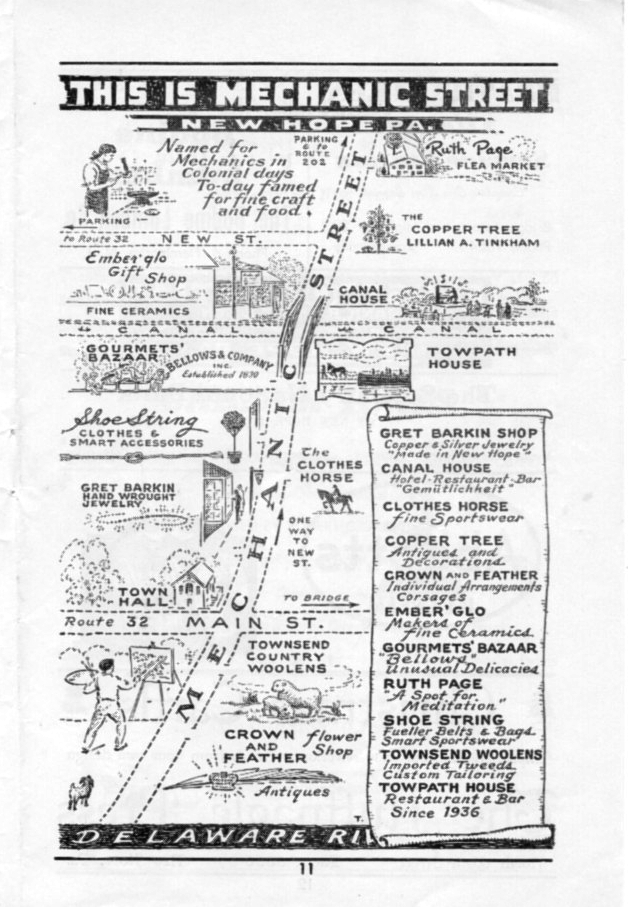 THIS IS MECHANIC STREET
NEW HOPE PA.
Named for
Mechanics in
Colonial days
To-day famed
for fine craft
and food.
PARKING
& to
ROUTE
202
Ruth Page
FLEA MARKET
PARKING
to Route 32
NEW ST.
THE
COPPER TREE
LILLIAN A. TINKHAM
Ember'glo
Gift
Shop
FINE CERAMICS
CANAL
HOUSE
CANAL
CANAL
GOURMETS'
BAZAAR
BELLOWS & COMPANY
INC.
Established 1830
TOWPATH
HOUSE
Shoe String
CLOTHES &
SMART ACCESSORIES
The
CLOTHES
HORSE
GRET BARKIN
HAND WROUGHT
JEWELRY
ONE
WAY
TO
NEW
ST.
MECHANIC STREET
TOWN
HALL
TO BRIDGE
Route 32
MAIN ST.
TOWNSEND
COUNTRY
WOOLENS
CROWN
AND
FEATHER
flower
Shop
Antiques
T.
DELAWARE RI
GRET BARKIN SHOP
Copper & Silver Jewelry
"Made in New Hope"
CANAL HOUSE
Hotel-Restaurant-Bar
"Gemütlichkeit"
CLOTHES HORSE
fine Sportswear
COPPER TREE
Antiques and
Decorations
CROWN AND FEATHER
Individual Arrangements
Corsages
EMBER'GLO
Makers of
fine Ceramics.
GOURMETS' BAZAAR
"Bellows"
Unusual Delicacies
RUTH PAGE
"A Spot for
Meditation"
SHOE STRING
Fueller Belts & Bags.
Smart Sportswear
TOWNSEND WOOLENS
Imported Tweeds
Custom Tailoring
TOWPATH HOUSE
Restaurant & Bar
Since 1936
11